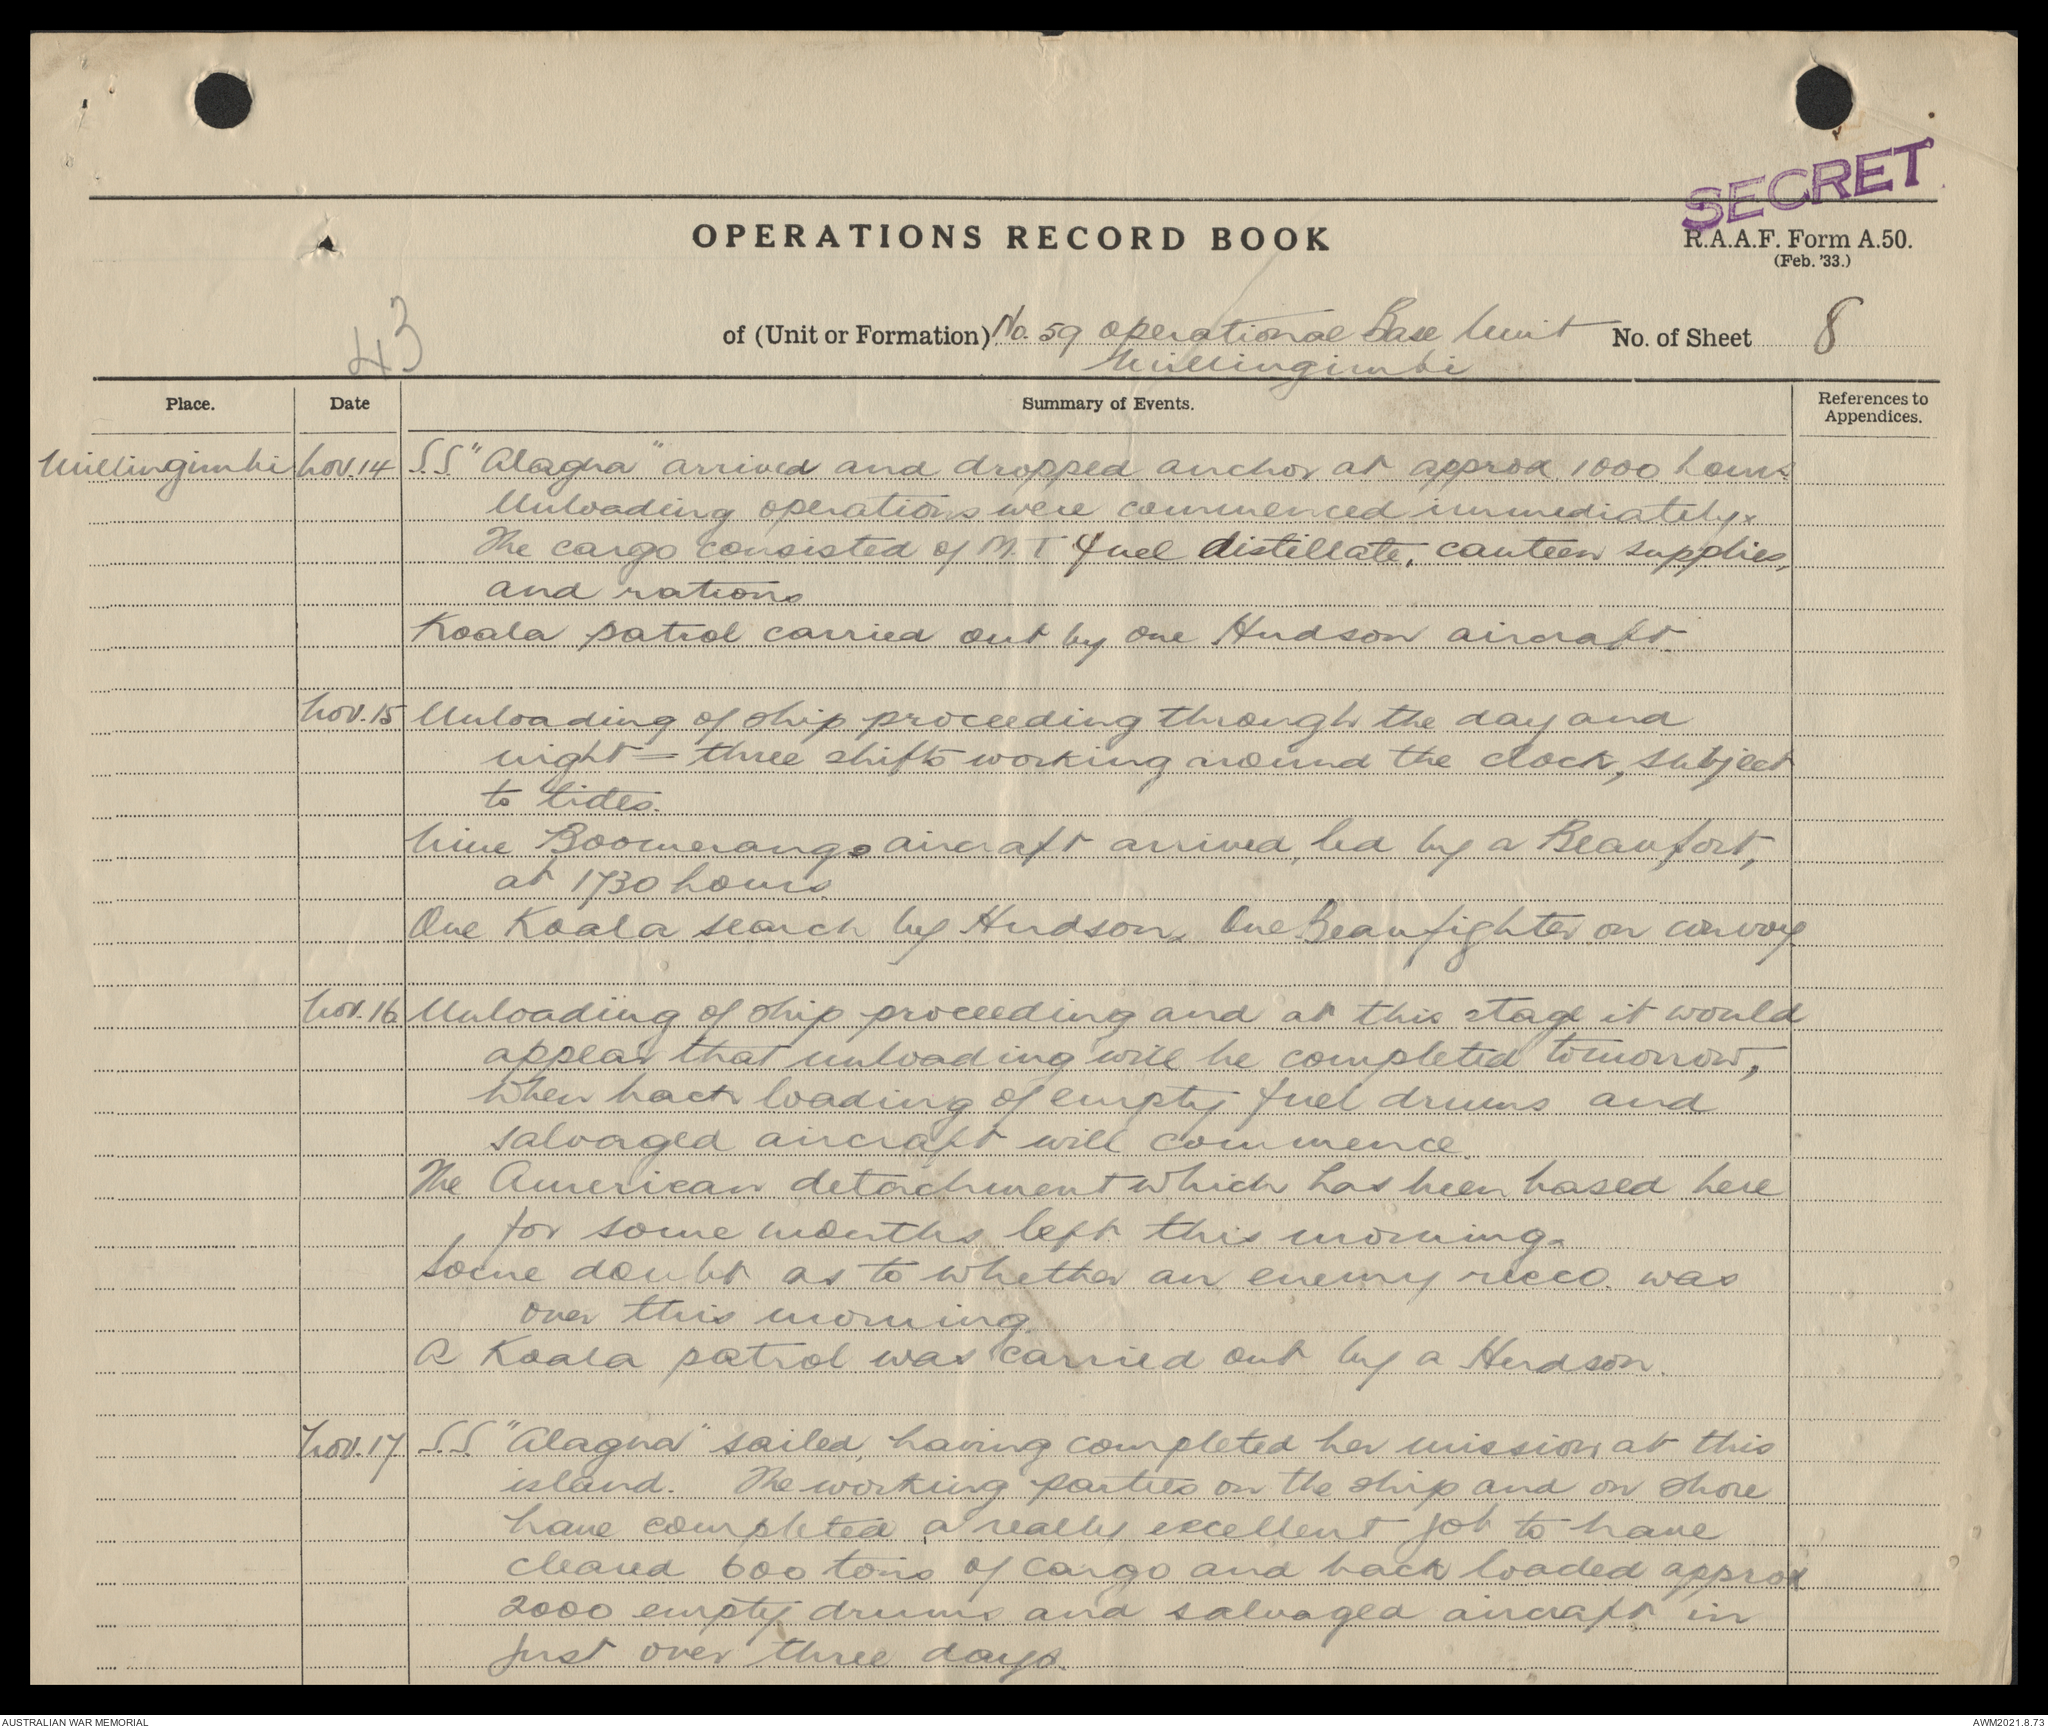 SECRET
OPERATIONS RECORD BOOK
R.A.A.F. Form A.50.
(Feb. '33.)
43
of (Unit or Formation) No. 59 Operational Base Unit No. of Sheet 8
Millingimbi
Place. Date Summary of Events. References to Appendices.
Millingimbi Nov. 14 S.S. "Alagna" arrived and dropped anchor at approx 1000 hours.
Unloading operations were commenced immediately.
The cargo consisted of M.T fuel distillate, canteen supplies,
and rations
Koala patrol carried out by one Hudson aircraft.
Nov. 15 Unloading of ship proceeding through the day and
night - three shifts working around the clock, subject
to tides.
Nine Boomerang aircraft arrived, led by a Beaufort,
at 1730 hours.
One Koala search by Hudson. One Beaufighter on convoy
Nov. 16 Unloading of ship proceeding and at this stage it would
appear that unloading will be completed tomorrow,
when back loading of empty fuel drums and
salvaged aircraft will commence.
The American detachment which has been based here
for some months left this morning.
Some doubt as to whether an enemy recco. was
over this morning.
A Koala patrol was carried out by a Hudson.
Nov. 17. S.S. "Alagna" sailed, having completed her mission at this
island. The working parties on the ship and on shore
have completed a really excellent job to have
cleared 600 tons of cargo and back loaded approx
2000 empty drums and salvaged aircraft in
just over three days.
AUSTRALIAN WAR MEMORIAL
AWM2021.8.73